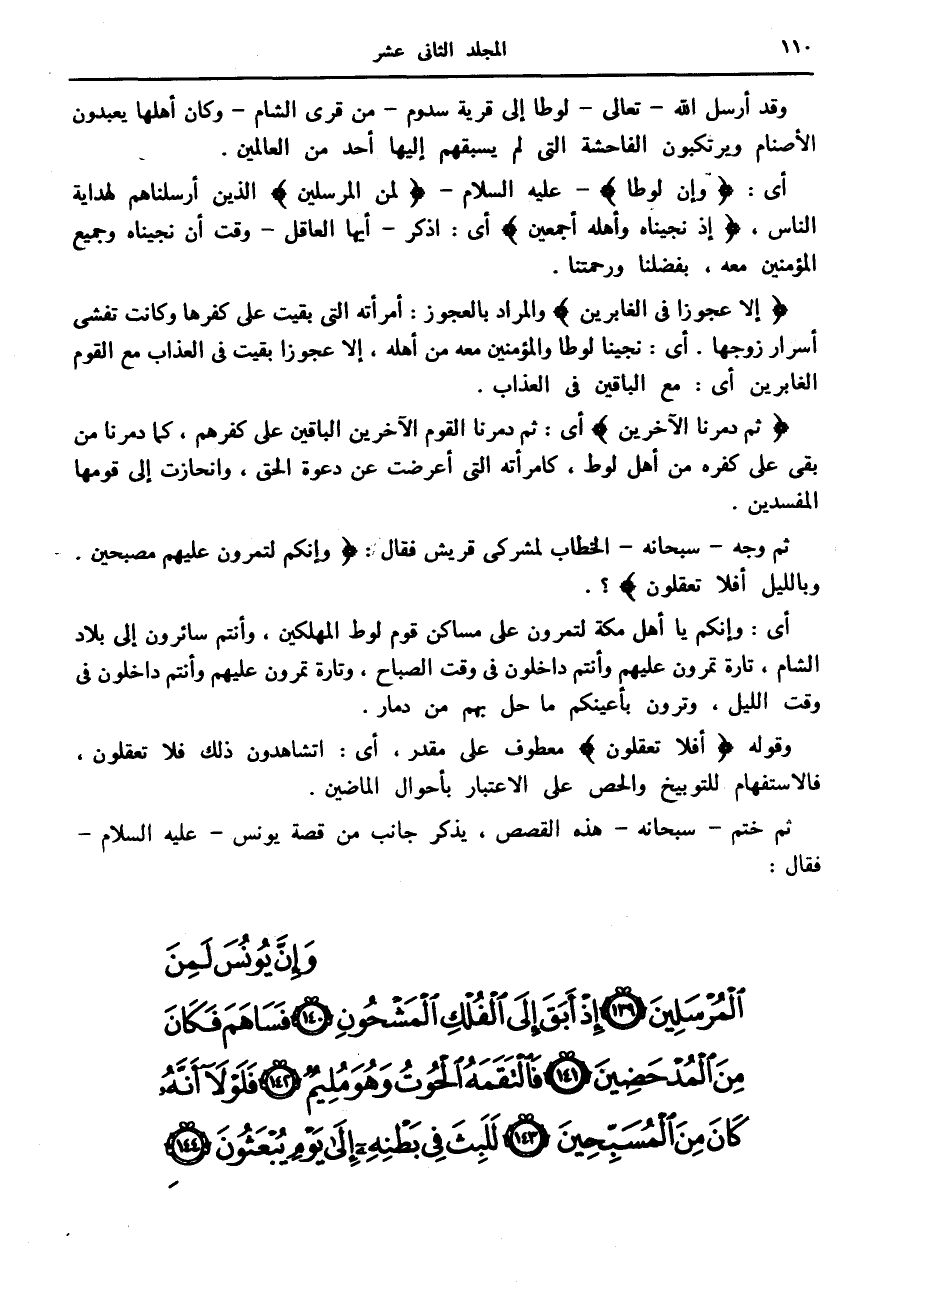 ١١٠
المجلد الثانى عشر
وقد أرسل الله – تعالى – لوطا إلى قرية سدوم – من قرى الشام – وكان أهلها يعبدون
الأصنام ويرتكبون الفاحشة التى لم يسبقهم إليها أحد من العالمين .
أى : ﴿ وإن لوطا ﴾ – عليه السلام – ﴿ لمن المرسلين ﴾ الذين أرسلناهم لهداية
الناس ، ﴿ إذ نجيناه وأهله أجمعين ﴾ أى : اذكر – أيها العاقل – وقت أن نجيناه وجميع
المؤمنين معه ، بفضلنا ورحمتنا .
﴿ إلا عجوزا فى الغابرين ﴾ والمراد بالعجوز : أمرأته التى بقيت على كفرها وكانت تفشى
أسرار زوجها . أى : نجينا لوطا والمؤمنين معه من أهله ، إلا عجوزا بقيت فى العذاب مع القوم
الغابرين أى : مع الباقين فى العذاب .
﴿ ثم دمرنا الآخرين ﴾ أى : ثم دمرنا القوم الآخرين الباقين على كفرهم ، كما دمرنا من
بقى على كفره من أهل لوط ، كامرأته التى أعرضت عن دعوة الحق ، وانحازت إلى قومها
المفسدين .
ثم وجه – سبحانه – الخطاب لمشركى قريش فقال : ﴿ وإنكم لتمرون عليهم مصبحين .
وبالليل أفلا تعقلون ﴾ ؟ .
أى : وإنكم يا أهل مكة لتمرون على مساكن قوم لوط المهلكين ، وأنتم سائرون إلى بلاد
الشام ، تارة تمرون عليهم وأنتم داخلون فى وقت الصباح ، وتارة تمرون عليهم وأنتم داخلون فى
وقت الليل ، وترون بأعينكم ما حل بهم من دمار .
وقوله ﴿ أفلا تعقلون ﴾ معطوف على مقدر ، أى : اتشاهدون ذلك فلا تعقلون ،
فالاستفهام للتوبيخ والحص على الاعتبار بأحوال الماضين .
ثم ختم – سبحانه – هذه القصص ، يذكر جانب من قصة يونس – عليه السلام –
فقال :
وَإِنَّ يُونُسَ لَمِنَ
ٱلْمُرْسَلِينَ ١٣٩ إِذْ أَبَقَ إِلَى ٱلْفُلْكِ ٱلْمَشْحُونِ ١٤٠ فَسَاهَمَ فَكَانَ
مِنَ ٱلْمُدْحَضِينَ ١٤١ فَٱلْتَقَمَهُ ٱلْحُوتُ وَهُوَ مُلِيمٌ ١٤٢ فَلَوْلَآ أَنَّهُۥ
كَانَ مِنَ ٱلْمُسَبِّحِينَ ١٤٣ لَلَبِثَ فِى بَطْنِهِۦٓ إِلَىٰ يَوْمِ يُبْعَثُونَ ١٤٤